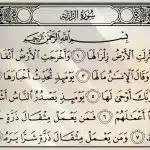 سُورَةُ الزَّلْزَلَةِ
بِسْمِ اللَّهِ الرَّحْمَٰنِ الرَّحِيمِ
زِلَتِ الْأَرْضُ زِلْزَالَهَا ١ وَأَخْرَجَتِ الْأَرْضُ أَثْقَا
وَقَالَ الْإِنسَانُ مَا لَهَا ٣ يَوْمَئِذٍ تُحَدِّثُ أَخْبَارَهَا
رَبَّكَ أَوْحَىٰ لَهَا ٥ يَوْمَئِذٍ يَصْدُرُ النَّاسُ أَشْتَا
أَعْمَالَهُمْ ٦ فَمَن يَعْمَلْ مِثْقَالَ ذَرَّةٍ
٧ وَمَن يَعْمَلْ مِثْقَالَ ذَرَّةٍ شَرًّا يَرَهُ